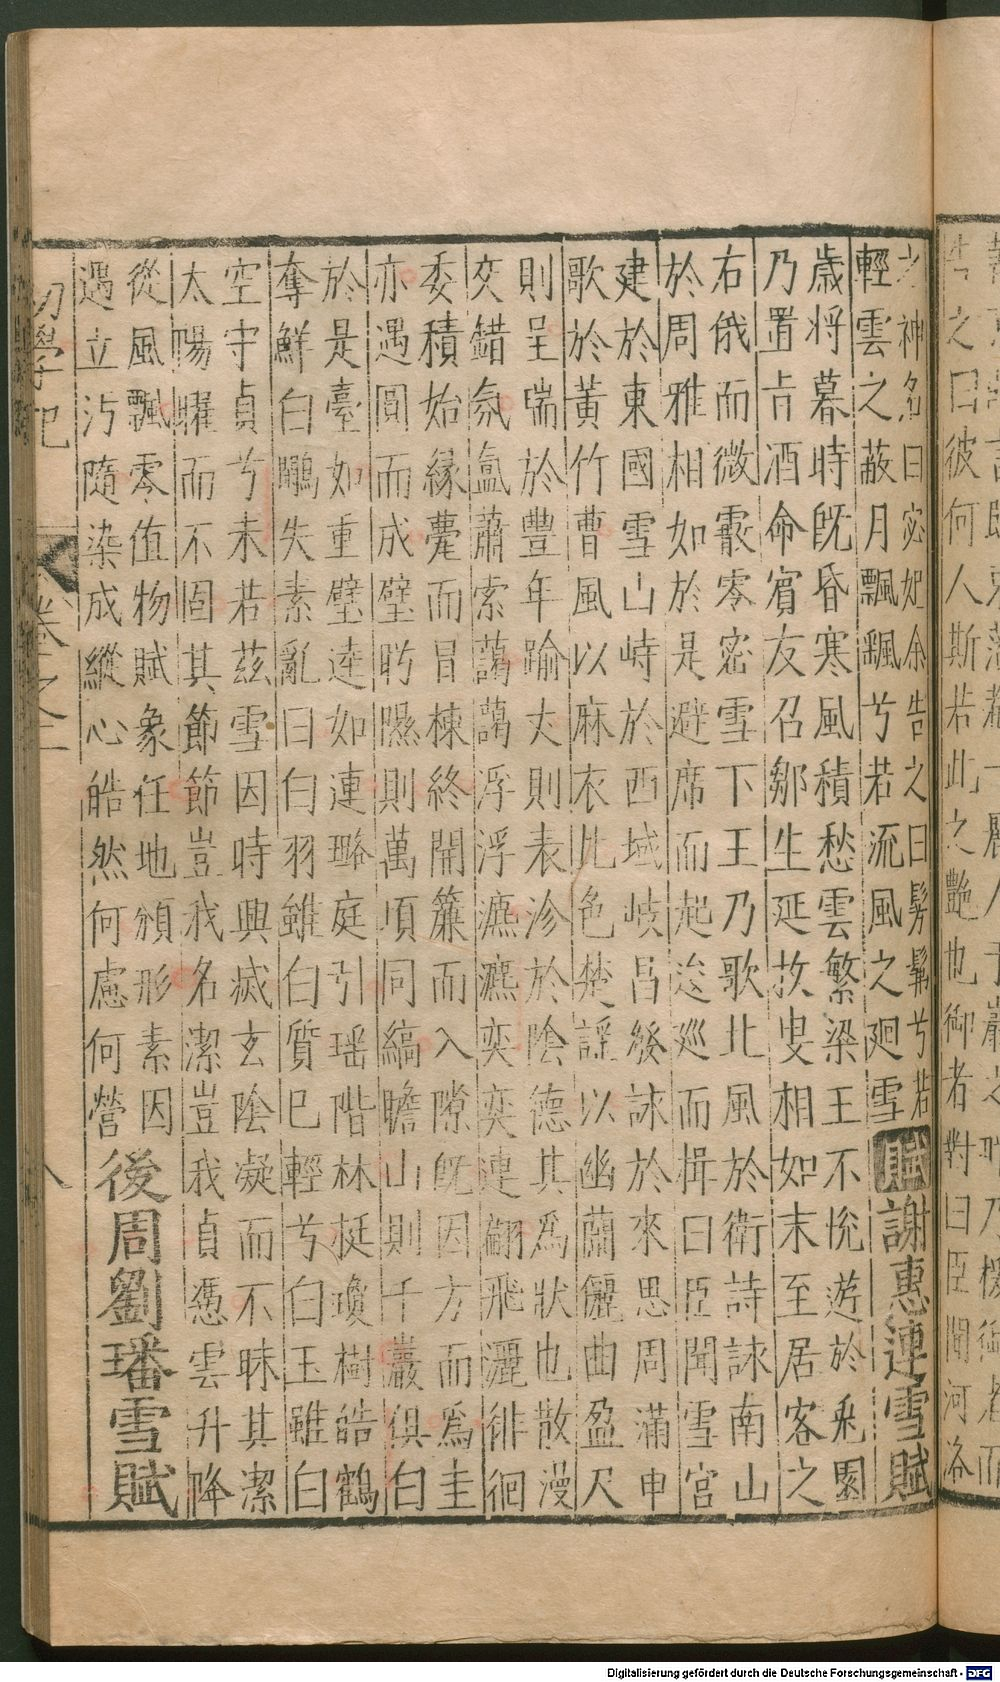 之曰彼何人斯若此之艷也御者對曰臣聞河洛
之神名曰宓妃余告之曰髣髴兮若
輕雲之蔽月飄颻兮若流風之廻雪
賦謝惠連雪賦
歲將暮時旣昏寒風積愁雲繁梁王不恱遊於兎園
乃置旨酒命賓友召鄒生延枚叟相如末至居客之
右俄而微霰零密雪下王乃歌北風於衛詩詠南山
於周雅相如於是避席而起逡廵而揖曰臣聞雪宫
建於東國雪山峙於西域岐昌發詠於來思周滿申
歌於黃竹曹風以麻衣比色楚謡以幽蘭儷曲盈尺
則呈喘於豐年踰丈則表沴於陰德其為狀也散漫
交錯氛氳蕭索藹藹浮浮瀌瀌奕奕連翩飛灑徘徊
委積始縁甍而冒棟終開簾而入隙旣因方而為圭
亦遇圓而成璧眄隰則萬頃同縞瞻山則千巖俱白
於是臺如重璧逵如連璐庭引瑶階林挺瓊樹皓鶴
奪鮮白鷴失素亂曰白羽雖白質已輕兮白玉雖白
空守貞兮未若兹雪因時興滅玄陰凝而不昧其潔
太陽曜而不固其節節豈我名潔豈我貞憑雲升降
從風飄零值物賦象任地頒形素因
遇立汚隨染成縱心皓然何慮何營
後周劉璠雪賦
初學記 卷之二 八
Digitalisierung gefördert durch die Deutsche Forschungsgemeinschaft - DFG